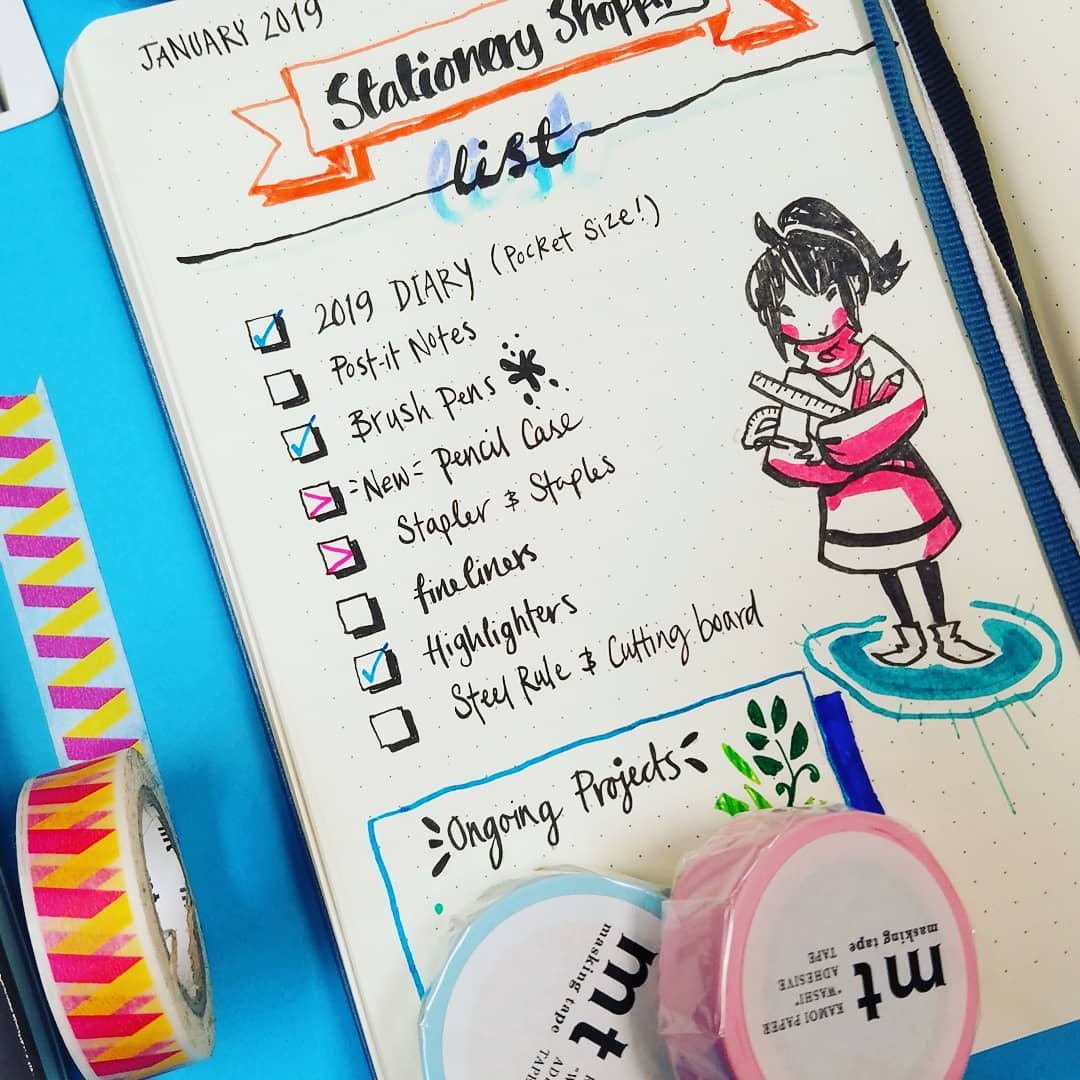 JANUARY 2019
Stationery Shopping
list
2019 DIARY (Pocket Size!)
Post-it Notes
Brush Pens
=New= Pencil Case
Stapler & Staples
fineliners
Highlighters
Steel Rule & Cutting board
Ongoing Projects
mt
masking tape
"WASHI"
TAPE
mt
masking tape
KAMOI PAPER
"WASHI" ADHESIVE
TAPE
mt